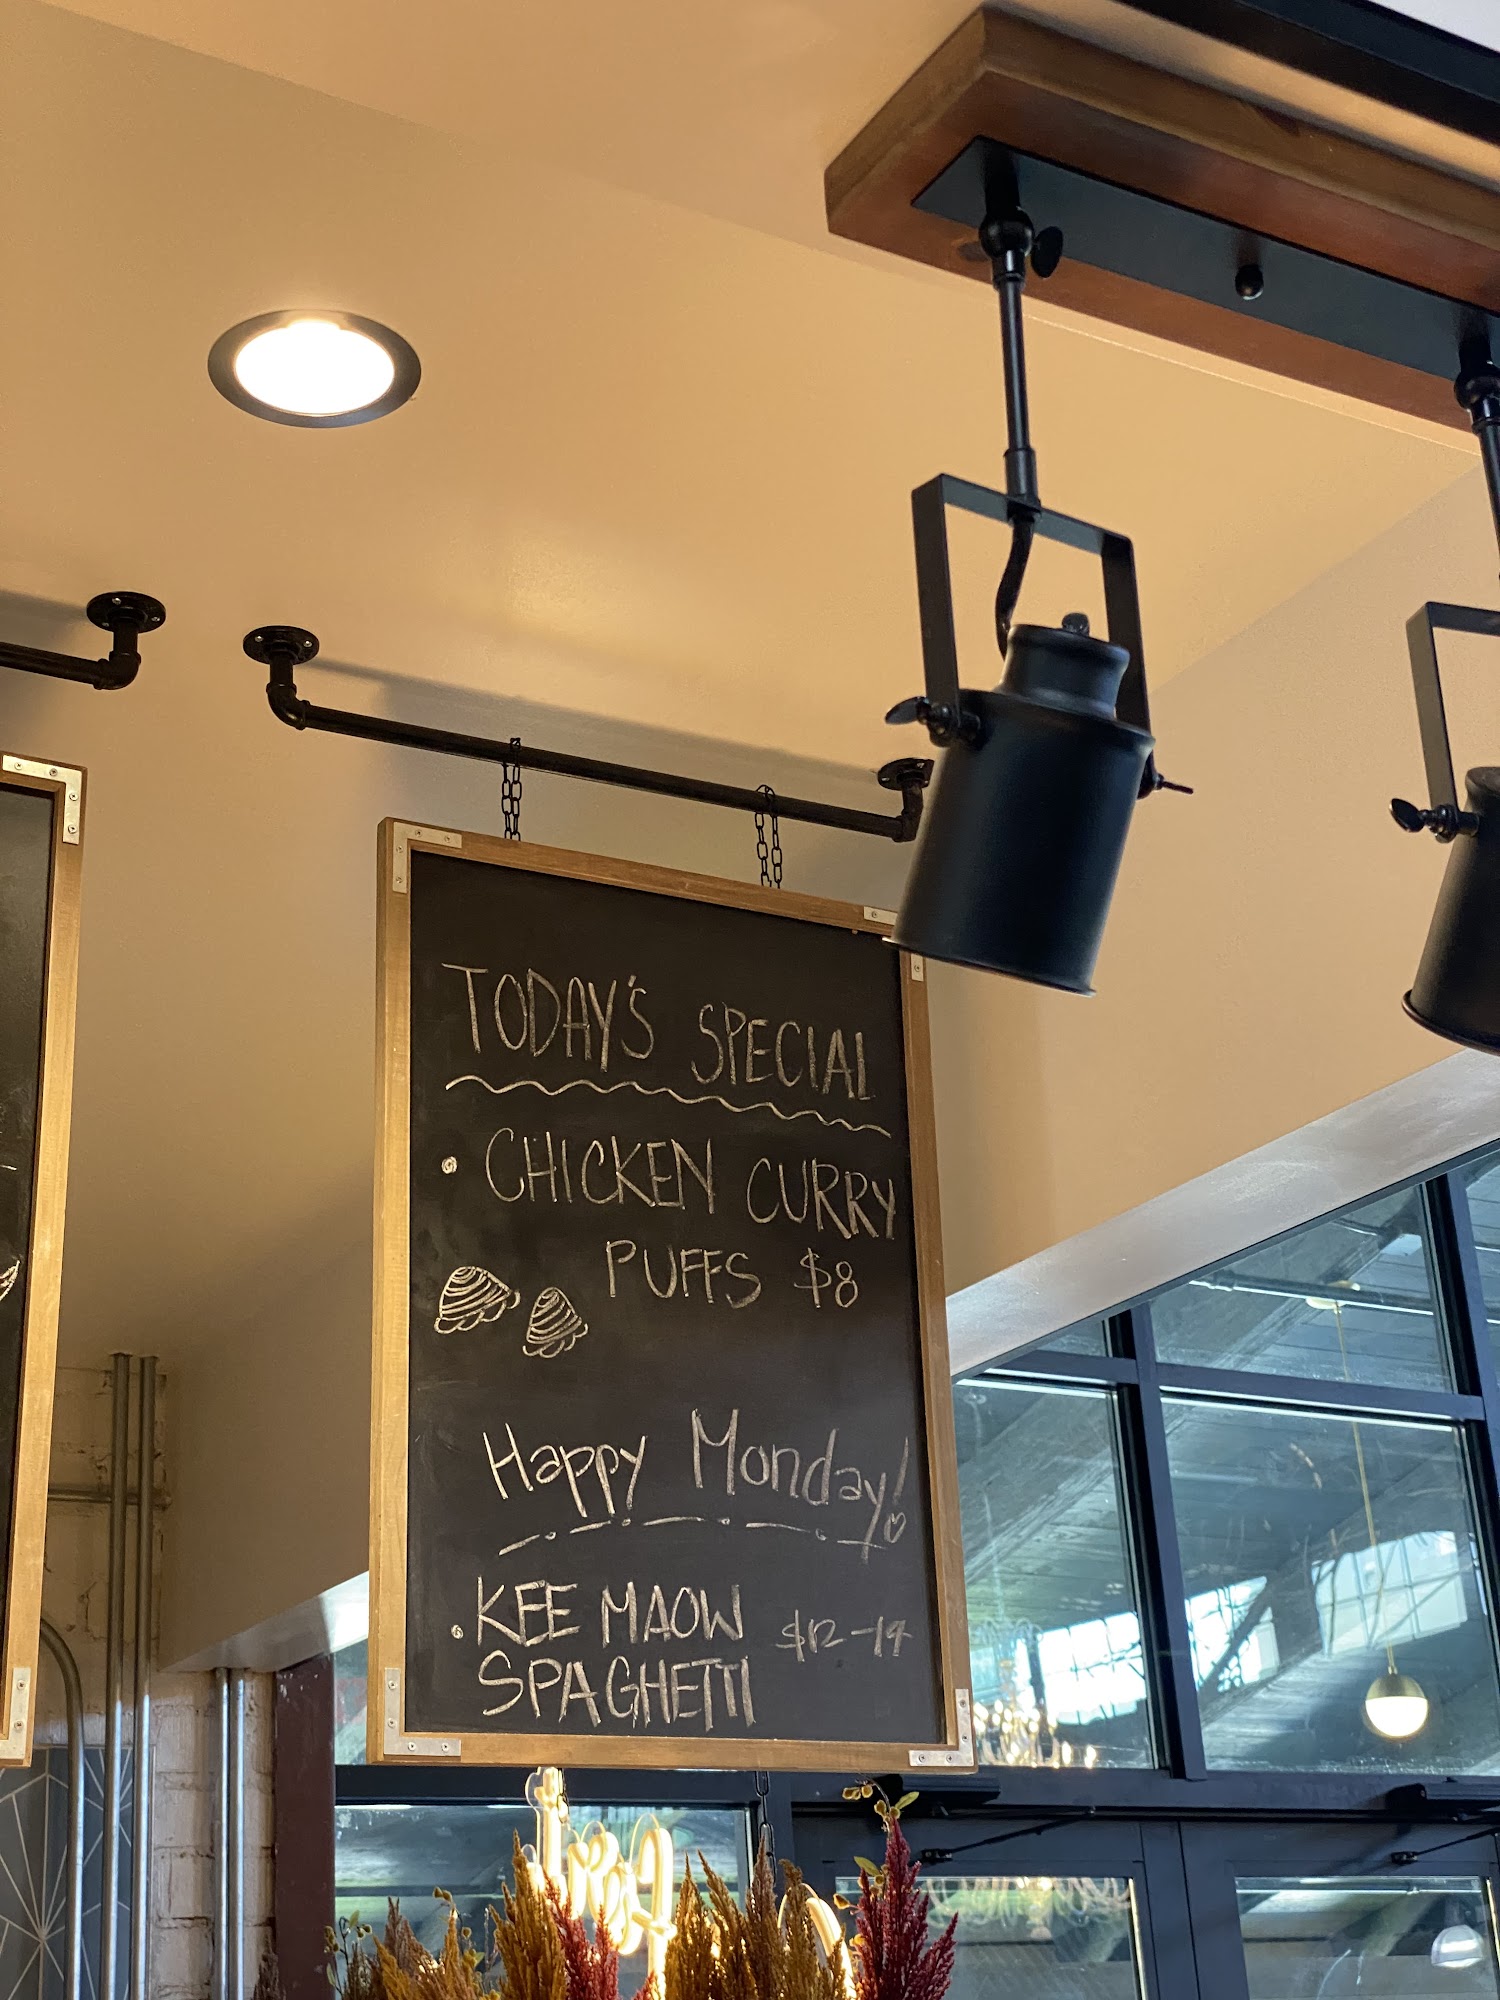 TODAY'S SPECIAL
• CHICKEN CURRY
PUFFS $8
Happy Monday!
• KEE MAOW $12-14
SPAGHETTI